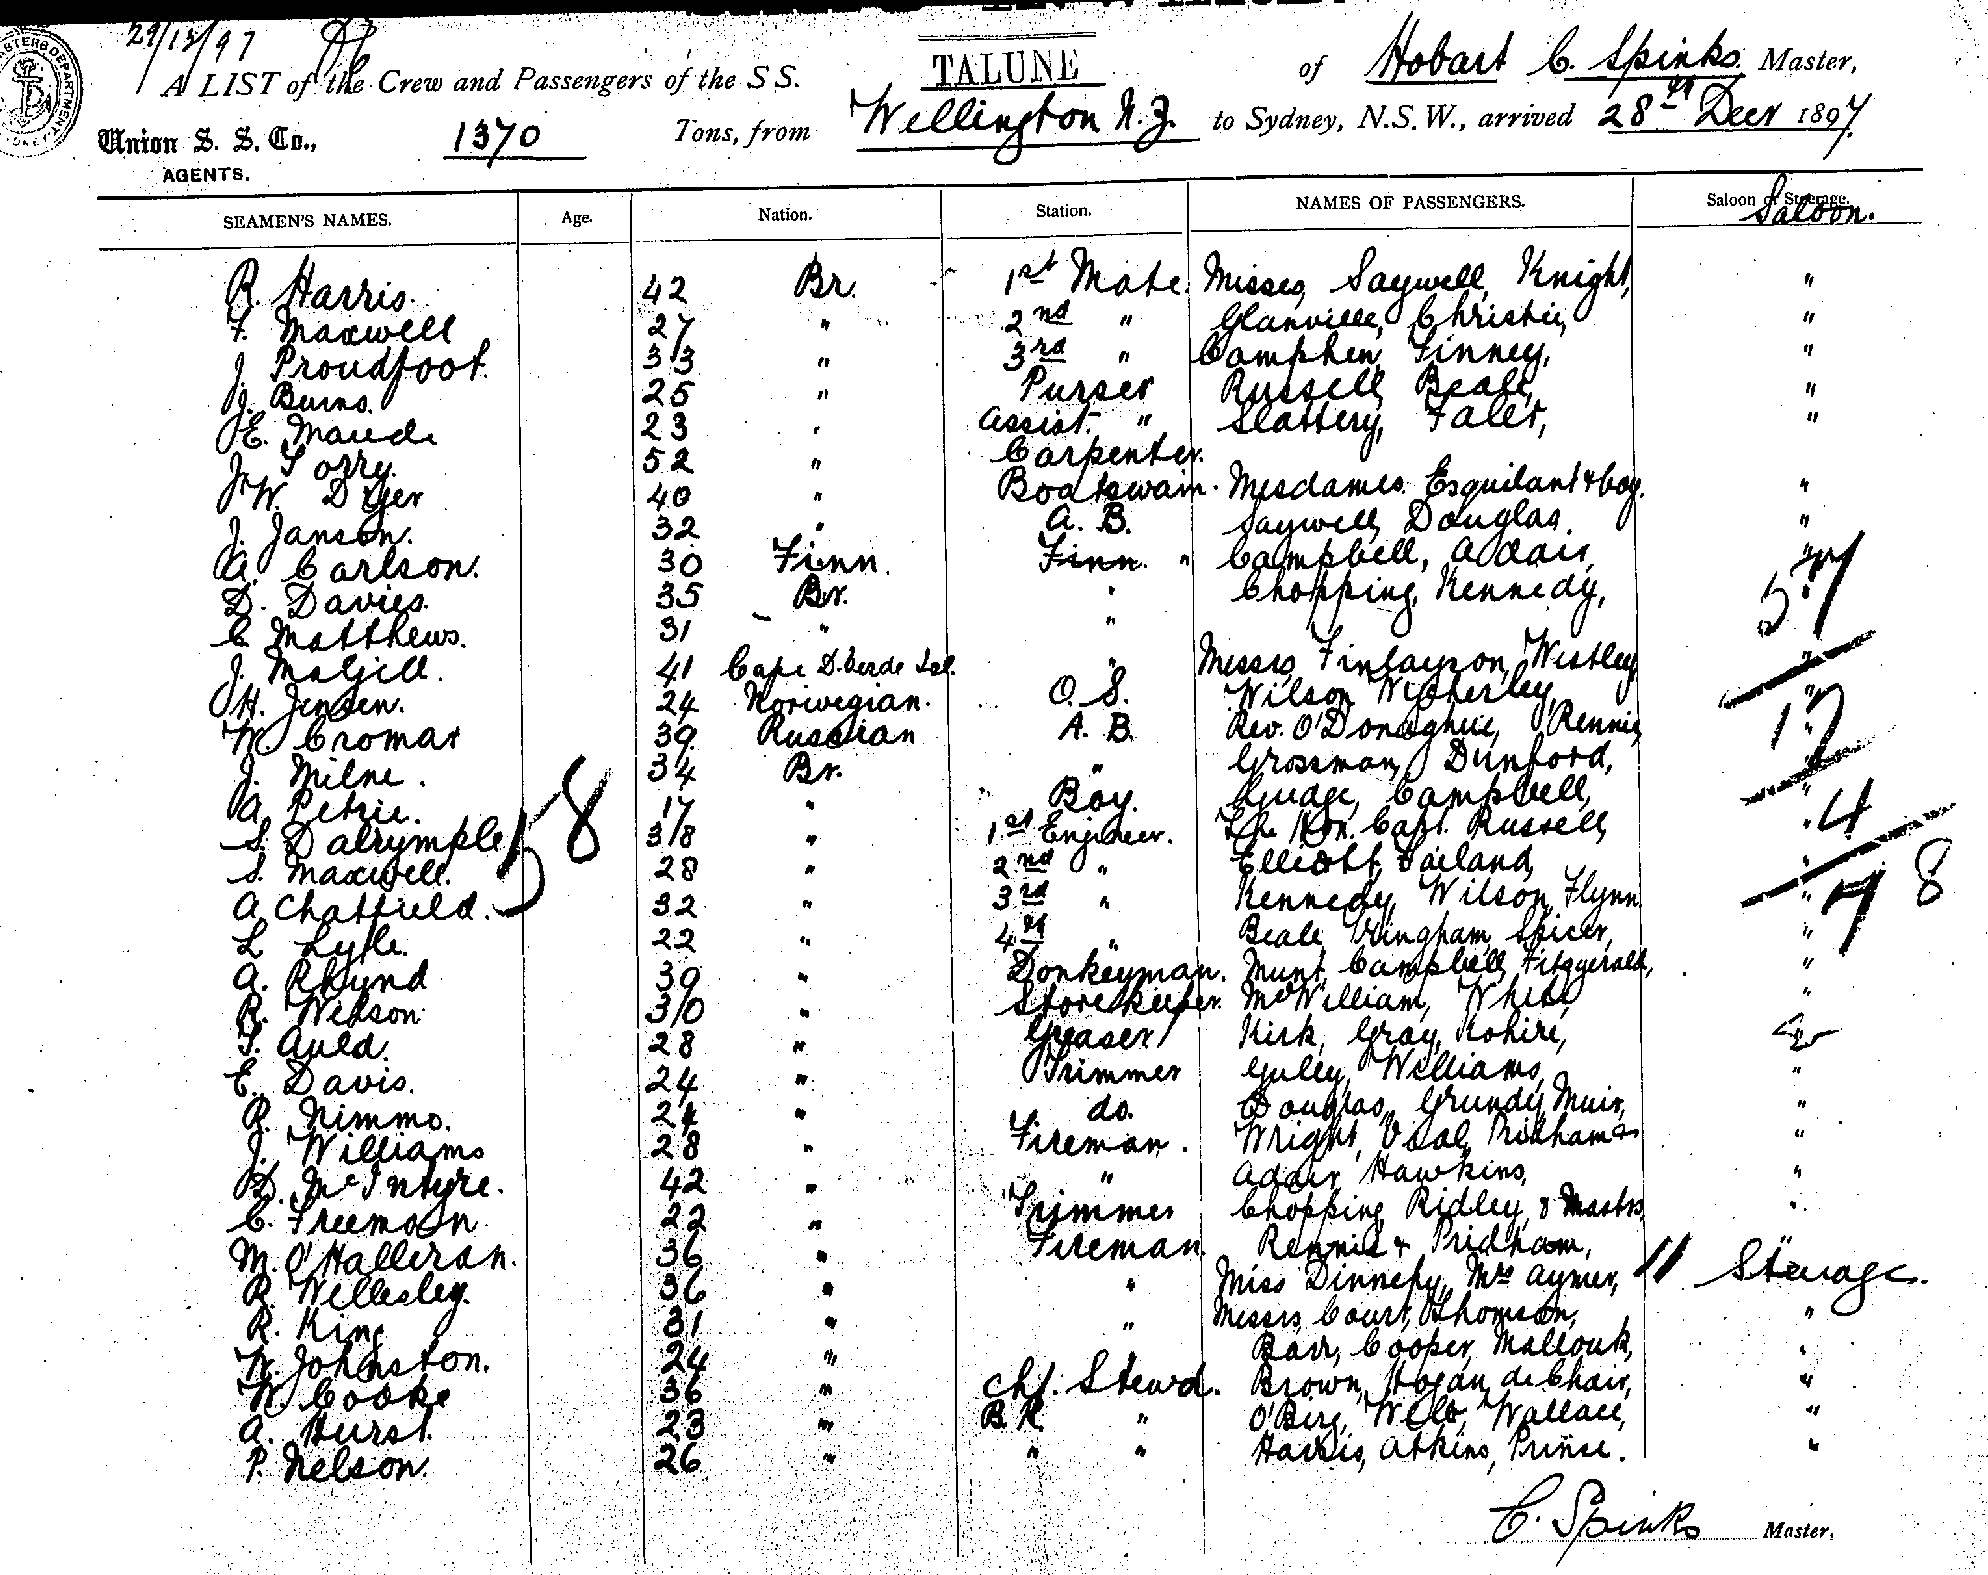 29/12/97
A LIST of the Crew and Passengers of the S S. TALUNE of Hobart C. Spinks Master,
Union S. S. Co., 1370 Tons, from Wellington N.Z. to Sydney, N.S.W., arrived 28th Decr 1897
AGENTS.
SEAMEN'S NAMES. Age. Nation. Station. NAMES OF PASSENGERS. Saloon or Steerage.
Saloon.
R. Harris. 42 Br. 1st Mate. Misses, Saywell, Knight, "
F. Maxwell 27 " 2nd " Glanville, Christie, "
J. Proudfoot. 33 " 3rd " Camphen, Finney, "
J. Burns. 25 " Purser Russell, Beale, "
E. Maude 23 " Assist. " Slattery, Faler, "
J. Torry. 52 " Carpenter.
W. Dyer 40 " Boatswain. Mesdames. Esquilant & boy. "
J. Janson. 32 " A. B. Saywell, Douglas. "
A. Carlson. 30 Finn. Finn. " Campbell, Adair, "
D. Davies. 35 Br. " Chopping, Kennedy, 57
C Matthews. 31 " "
J. McGill. 41 Cape D. Verde Isl. " Messrs, Finlayson, Westley "
H. Jensen. 24 Norwegian. O. S. Wilson, Witherley, "
W. Cromar 39 Russian A. B. Rev. O'Donaghue, Rennie, 17
J. Milne. 34 Br. " Grossman, Dunford,
A. Petrie. 17 " Boy. Gudge, Campbell, "
S. Dalrymple 58 38 " 1st Engineer. The Hon. Capt. Russell, 4
S. Maxwell. 28 " 2nd " Elliott, "
A. Chatfield. 32 " 3rd " Kennedy, Wilson, Flynn 78
L Lyle. 22 " 4th " Beale, Bringham, Spicer, "
A. Rhynd 39 " Donkeyman. Munt, Campbell, Fitzgerald, "
R. Wilson 30 " Storekeeper. McWilliam, White, "
T. Auld. 28 " Greaser Kirk, Gray, Kohire,
E. Davis. 24 " Trimmer Guley, Williams, "
R. Nimmo. 24 " do. Douglas, Grundy, Muir, "
J. Williams 28 " Fireman. Wright, Pridham "
D. McIntyre. 42 " " Adair, Hawkins, "
C. Freeman 22 " Trimmer Chopping, Ridley, & Mastrs "
M. O'Halleran. 36 " Fireman Rennie & Pridham,
R. Wellesley. 36 " " Miss Dinnepy, Mrs Aymer, 11 Steerage.
R. King 31 " " Messrs, Court, Thomson, "
W. Johnston. 24 " " Barr, Cooper, Mallouk, "
W Cooke 36 " Chf. Stewd. Brown, Hogan, de Chair, "
A. Hurst. 23 " B. R. " O'Birg, Webb, Wallace, "
P. Nelson. 26 " " " Harris, Atkins, Prinse. "
C. Spinks Master,